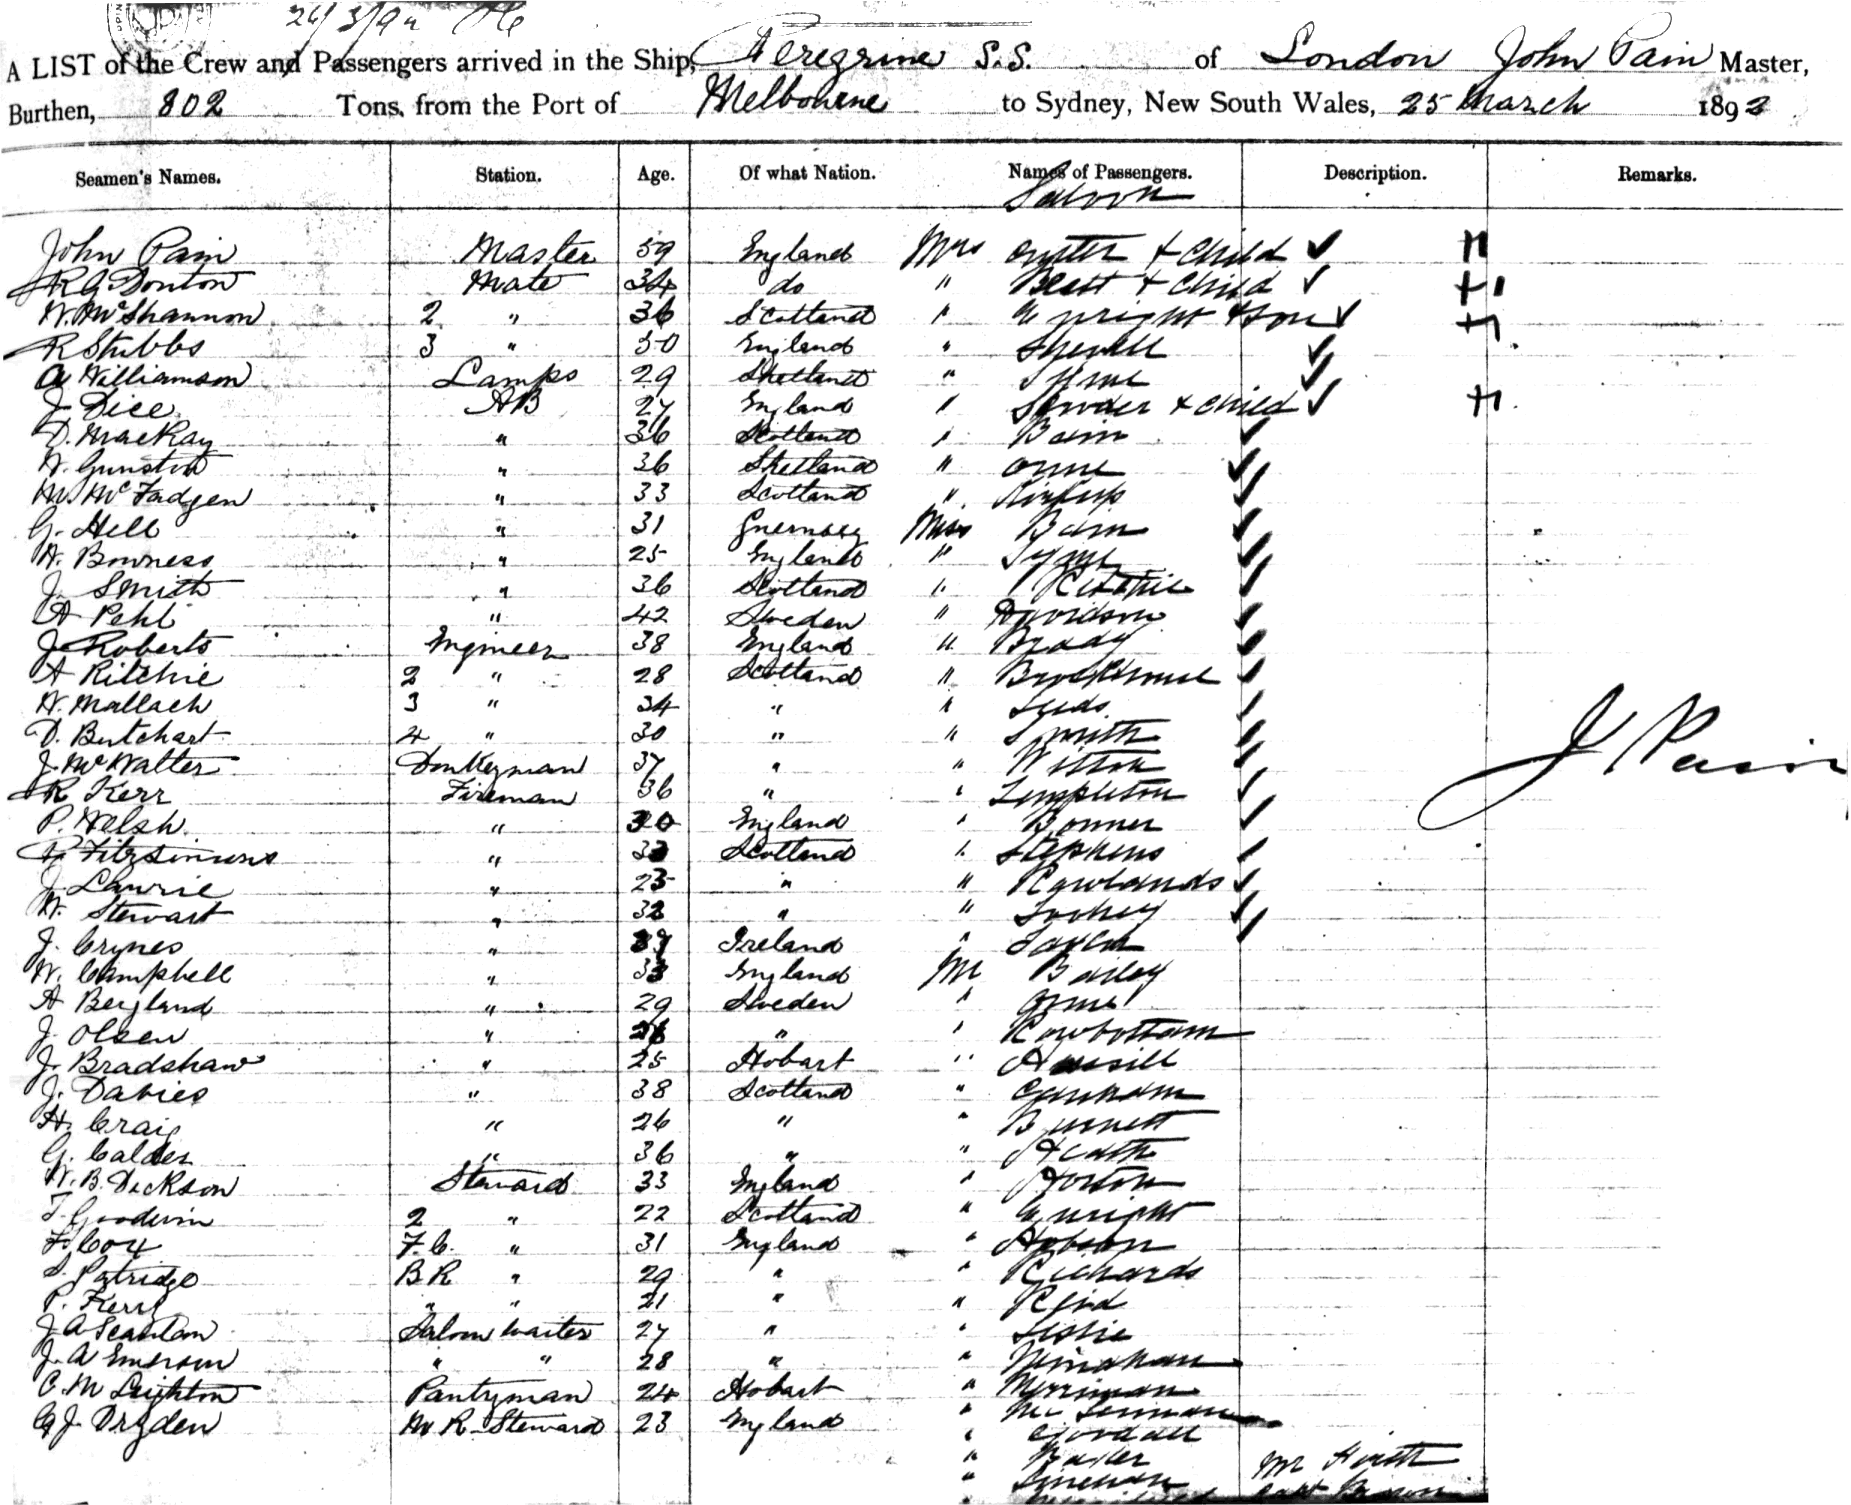 A LIST of the Crew and Passengers arrived in the Ship, Peregrine S.S. of London John Pain Master,
Burthen, 802 Tons, from the Port of Melbourne to Sydney, New South Wales, 25 March 1892
Seamen's Names. Station. Age. Of what Nation. Names of Passengers. Description. Remarks.
Saloon
John Pain Master 59 England Mrs & child
Mate 34 do " & Child
W. McShannon 2 " 36 Scotland "
R Stubbs 3 " 50 England "
Williamson Lamps 29 Shetland " Syme
J. Dice AB 27 England " & child
D. MacKay " 36 Scotland " Bain
W. Gunston " 36 Shetland " Orme
M. McFadgen " 33 Scotland "
G. Hell " 31 Guernsey Miss Bain
W. Bowness " 25 England " Syme
J. Smith " 36 Scotland " Ritchie
A Pehl " 42 Sweden " Davidson
J Roberts Engineer 38 England " Brady
A Ritchie 2 " 28 Scotland " Brookhouse
W. Mallach 3 " 34 " "
D. Butchart 4 " 30 " " Smith
J. McWalter Donkeyman 37 " " Witton
R Kerr Fireman 36 " " Templeton
P. Welsh " 30 England " Bonner
Fitzsimons " 33 Scotland " Stephens
J. Lawrie " 25 " " Rowlands
W. Stewart " 32 " "
J. Crynes " Ireland "
W. Campbell " 33 England Mr Bailey
A Bergland " 29 Sweden " Orme
J. Olsen " " " Rowbottam
J. Bradshaw " 25 Hobart "
J. Davies " 38 Scotland "
H. Craig " 26 " " Burnett
G. Calder " 36 " " Heath
W. B. Dickson Steward 33 England " Horton
T. Goodwin 2 " 22 Scotland "
F. Cox F.C. " 31 England " Hobson
S. Patridge BR " 29 " " Richards
P. Kerry " " 21 " " Reid
J A Scanlan Saloon Waiter 27 " " Leslie
J. A Emerson " " 28 " " Minahan
C. M Leighton Pantryman 24 Hobart " Merriman
G J Dryden M R Steward 23 England "
" Goodall
" Baker Mr Hirst
"
J Pain